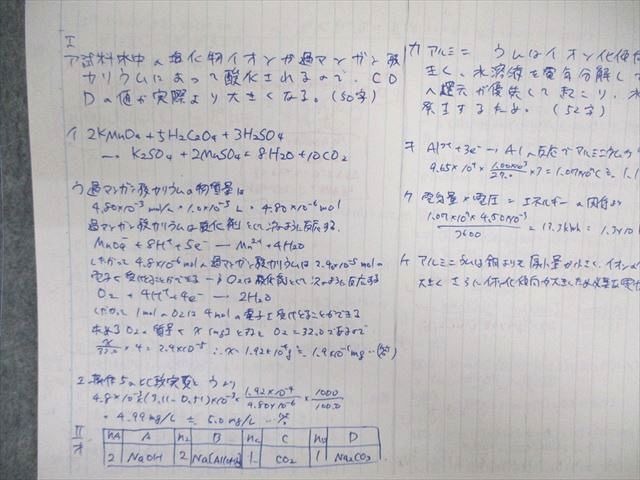 I
ア 試料水中の塩化物イオンが過マンガン酸
カリウムによって酸化されるので、CO
Dの値が実際より大きくなる。(50字)
イ 2KMnO4 + 5H2C2O4 + 3H2SO4
→ K2SO4 + 2MnSO4 + 8H2O + 10CO2
ウ 過マンガン酸カリウムの物質量は
4.80×10⁻³ mol/L × 1.0×10⁻³ L = 4.80×10⁻⁶ mol
過マンガン酸カリウムは酸化剤として次のように反応する.
MnO4⁻ + 8H⁺ + 5e⁻ → Mn²⁺ + 4H2O
したがって 4.8×10⁻⁶ molの過マンガン酸カリウムは 2.4×10⁻⁵ molの
電子を受けとることができる 一方O2は酸化剤として次のように反応する
O2 + 4H⁺ + 4e⁻ → 2H2O
1molのO2は4molの電子を受けとることができる
求めるO2の質量を x [mg] とすると O2 = 32.0であるので
× 4 = 2.4×10⁻⁵ ∴ x = 1.92×10⁻⁴g ≒ 1.9×10⁻¹mg …(答)
エ 操作5 ウより
4.8×10⁻³×(3.11-0.51)×10⁻³× 1.92×10⁻⁴/4.80×10⁻⁶ × 1000/100.0
= 4.99 mg/L ≒ 5.0 mg/L …答
II
オ nA A n2 B nC C nD D
2 NaOH 2 Na[Al(OH)4] 1 CO2 1 Na2CO3
カ アルミニ うムはイオン化傾
く、水溶液を電気分解して
還元が優先して起こり、水
発生するため。(52字)
キ Al³⁺ + 3e⁻ → Alの反応でアルミニウムが
9.65×10⁴ × 1.00×10³/27.0 × 3 = 1.07×10⁷C ≒ 1.1
ク 電気量×電圧=エネルギーの関係より
1.07×10⁷ × 4.50×10⁻³/3600 = 13.3kWh = 1.3×10
ケ アルミニウムは銅よりも原子量が小さく、イオンの
大きく さらにイオン化傾向が大きいため